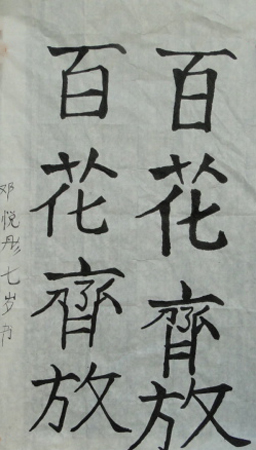 百花齊放
百花齊放
邓悦彤七岁书